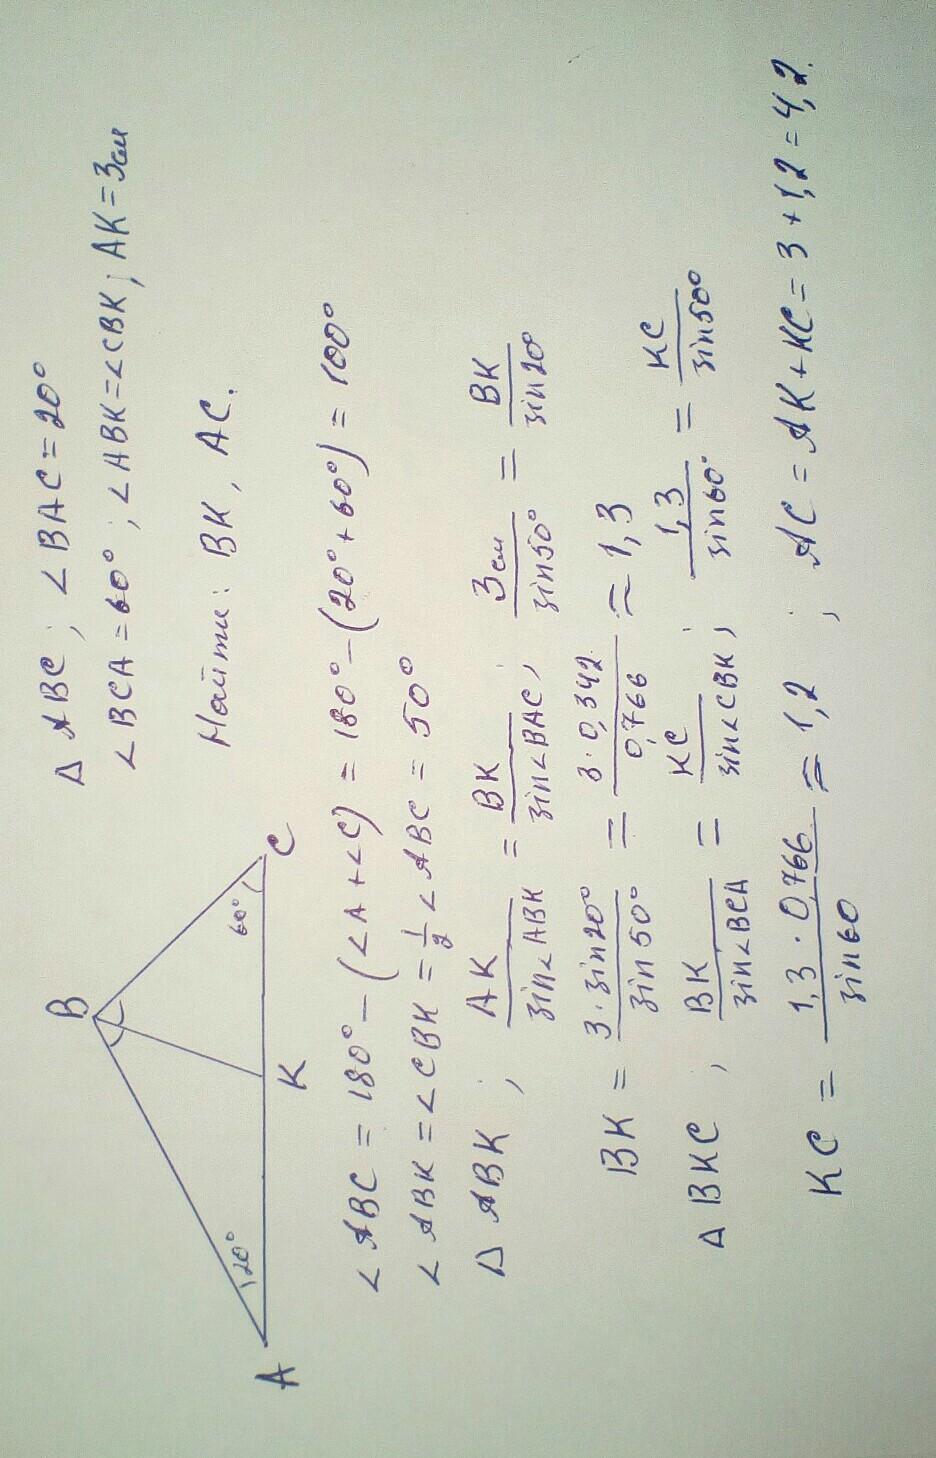 B
A
K
C
20°
60°
Δ ABC ; ∠BAC = 20°
∠BCA = 60° ; ∠ABK = ∠CBK ; AK = 3см
Найти: BK, AC.
∠ABC = 180° − (∠A + ∠C) = 180° − (20° + 60°) = 100°
∠ABK = ∠CBK = 1/2 ∠ABC = 50°
Δ ABK ; AK/sin∠ABK = BK/sin∠BAC ; 3см/sin50° = BK/sin20°
BK = 3·sin20°/sin50° = 3·0,342/0,766 ≈ 1,3
Δ BKC ; BK/sin∠BCA = KC/sin∠CBK ; 1,3/sin60° = KC/sin50°
KC = 1,3·0,766/sin60 ≈ 1,2 ; AC = AK + KC = 3 + 1,2 = 4,2.